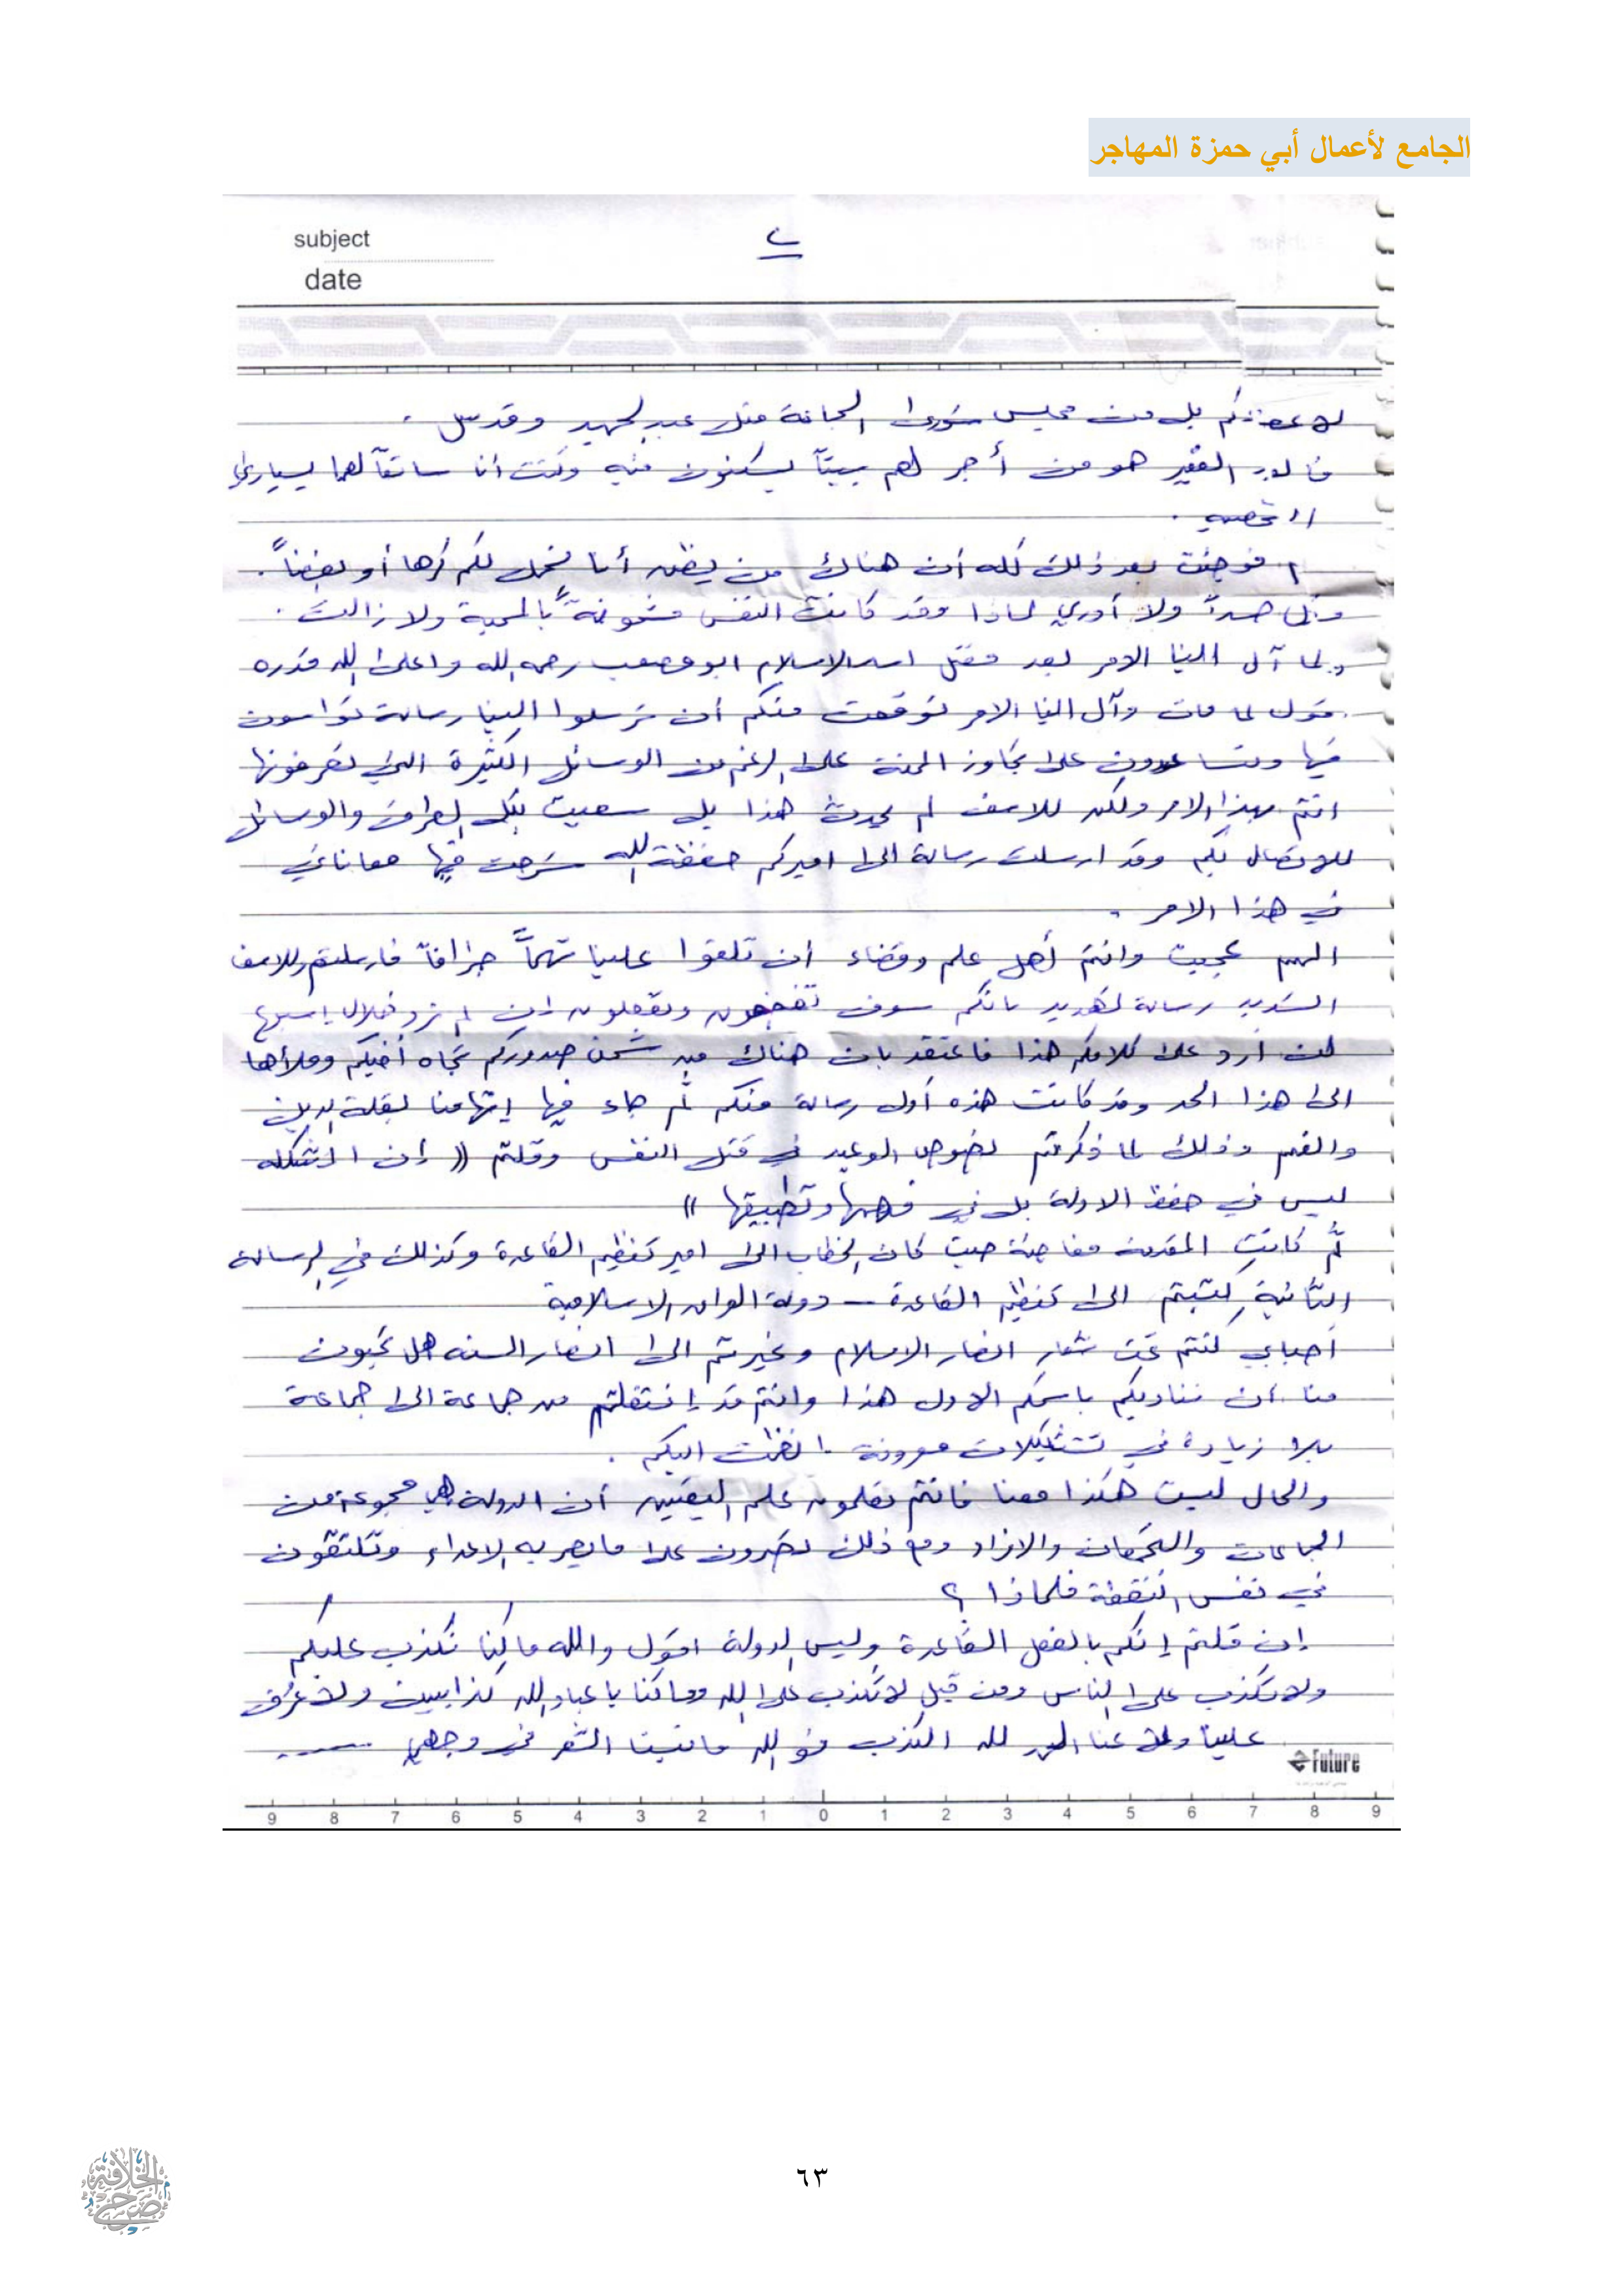 الجامع لأعمال أبي حمزة المهاجر
subject
date
٢
بل من مجلس شورى الجماعة مثل عبد الحميد وقدس
الفقير هو من أجر لهم بيتاً يسكنون فيه وكنت أنا سائقاً لهما بسيارتي
الشخصية .
فوجئت بعد ذلك كله أن هناك من يظن أننا نحمل لكم كرها أو بغضاً .
ولا أدري لماذا وقد كانت النفس مشحونة بالمحبة ولا زالت .
ولما آل الينا الامر بعد مقتل اسد الاسلام ابو مصعب رحمه الله واعلى الله قدره
مات وآل الينا الامر توقعت منكم أن ترسلوا الينا رسالة تواسون
فيها وتساعدون على تجاوز المحنة على الرغم من الوسائل الكثيرة التي تعرفونها
انتم بهذا الامر ولكن للاسف لم يحدث هذا بل سعيت بكل الطرق والوسائل
للاتصال بكم وقد ارسلت رسالة الى اميركم حفظه الله شرحت فيها معاناتي
في هذا الامر .
المهم عجبت وانتم أهل علم وقضاء أن تلقوا علينا تهماً جزافاً فارسلتم وللاسف
الشديد رسالة تهديد بانكم سوف وتفعلون إن لم نرد خلال
لن أرد على كلامكم هذا فاعتقد بان هناك من شحن صدوركم تجاه أخيكم وملأها
الى هذا الحد وقد كانت هذه أول رسالة منكم ثم جاء فيها إتهامنا بقلة الدين
والفهم وذلك لما ذكرتم نصوص الوعيد في قتل النفس وقلتم (( إن المشكلة
ليس في حفظ الادلة بل في فهمها وتطبيقها ))
ثم كانت المقدمة مفاجئة حيث كان الخطاب الى امير تنظيم القاعدة وكذلك في الرسالة
الثانية كتبتم الى تنظيم القاعدة - دولة العراق الاسلامية
أحبابي كنتم تحت شعار انصار الاسلام وغيرتم الى انصار السنه هل تحبون
منا أن نناديكم باسمكم الاول هذا وانتم قد إنتقلتم من جماعة الى جماعة
بلا زيادة في تشكيلات معروفة انضمت اليكم .
والحال ليست هكذا معنا فانتم تعلمون علم اليقين أن الدولة هي مجموعة من
الجماعات والتجمعات والافراد ومع ذلك تصرون على ما يصر به الاعداء وتلتقون
في نفس النقطة فلماذا ؟
إن قلتم إنكم بالفعل القاعدة وليس الدولة اقول والله ما كنا نكذب عليكم
ولا نكذب على الناس ومن قبل لا نكذب على الله وما كنا يا عباد الله كذابين ولا عُرف
علينا ولا عنا الحمد لله الكذب فو الله ما نبت الشعر في وجهي ......
Future
9 8 7 6 5 4 3 2 1 0 1 2 3 4 5 6 7 8 9
٦٣